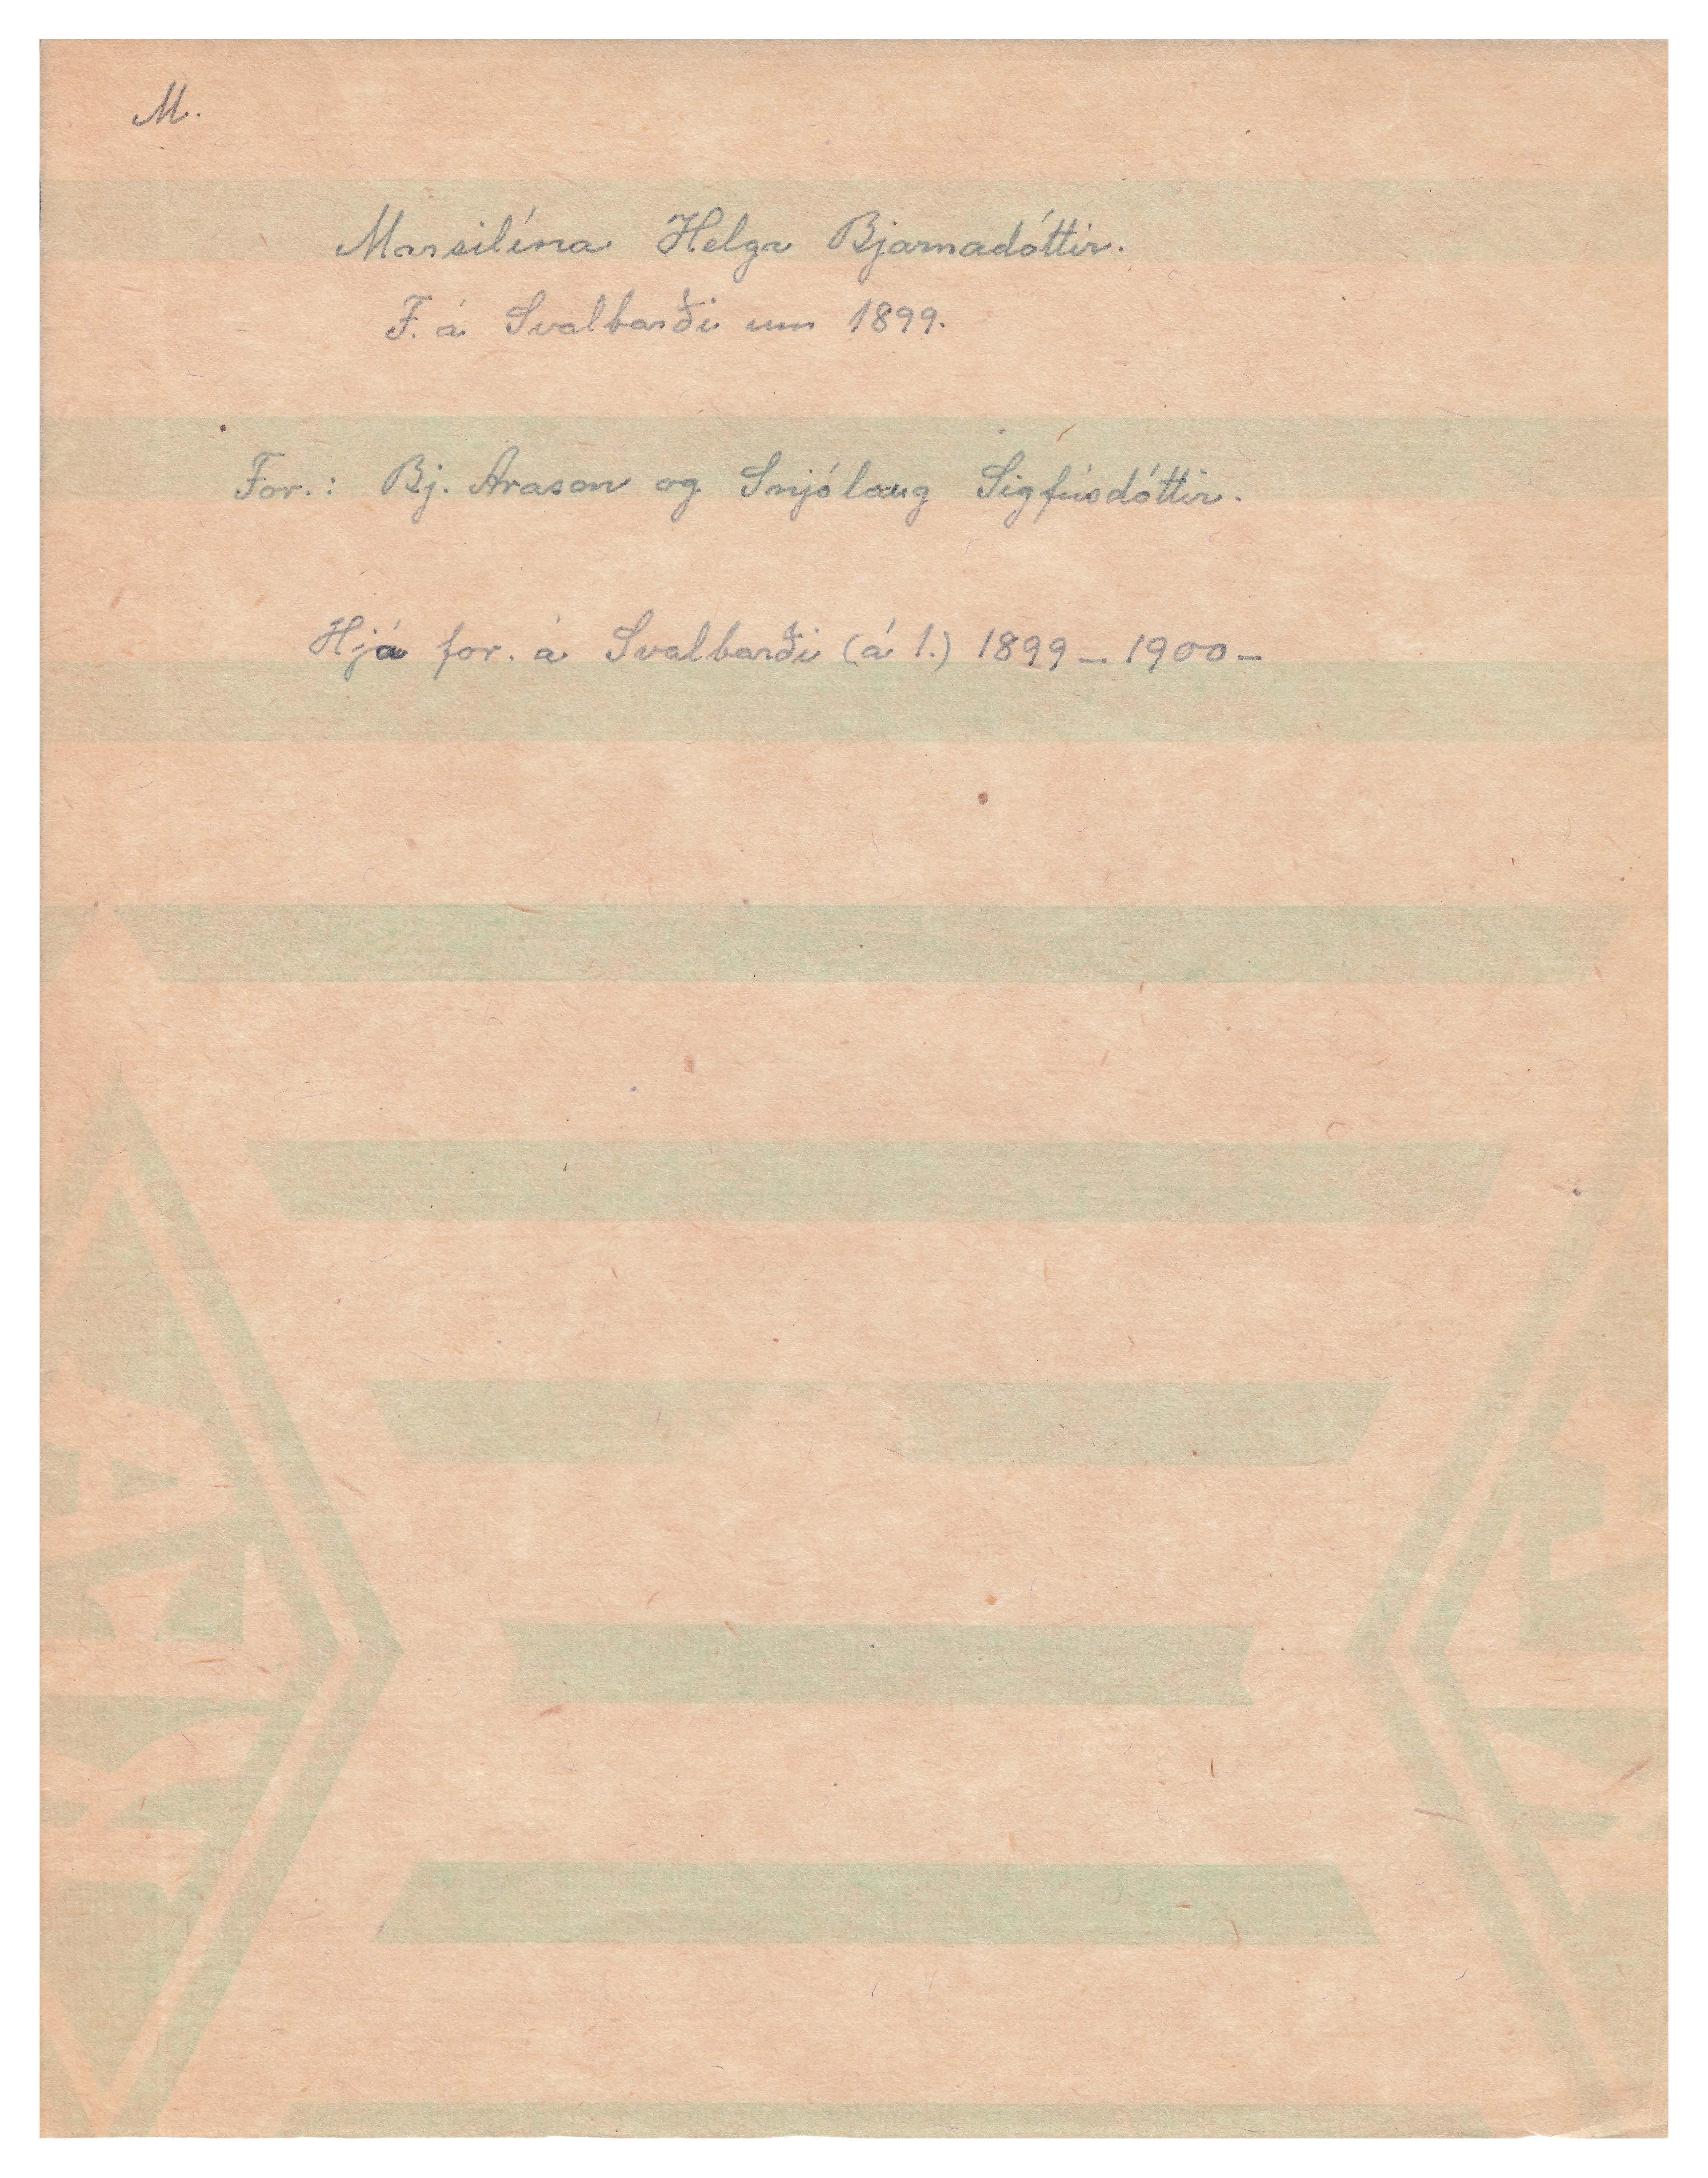 M.
Marsilína Helga Bjarnadóttir.
F. á Svalbarði um 1899.
For.: Bj. Arason og Snjólaug Sigfúsdóttir.
Hjá for. á Svalbarði (á 1.) 1899 – 1900 –